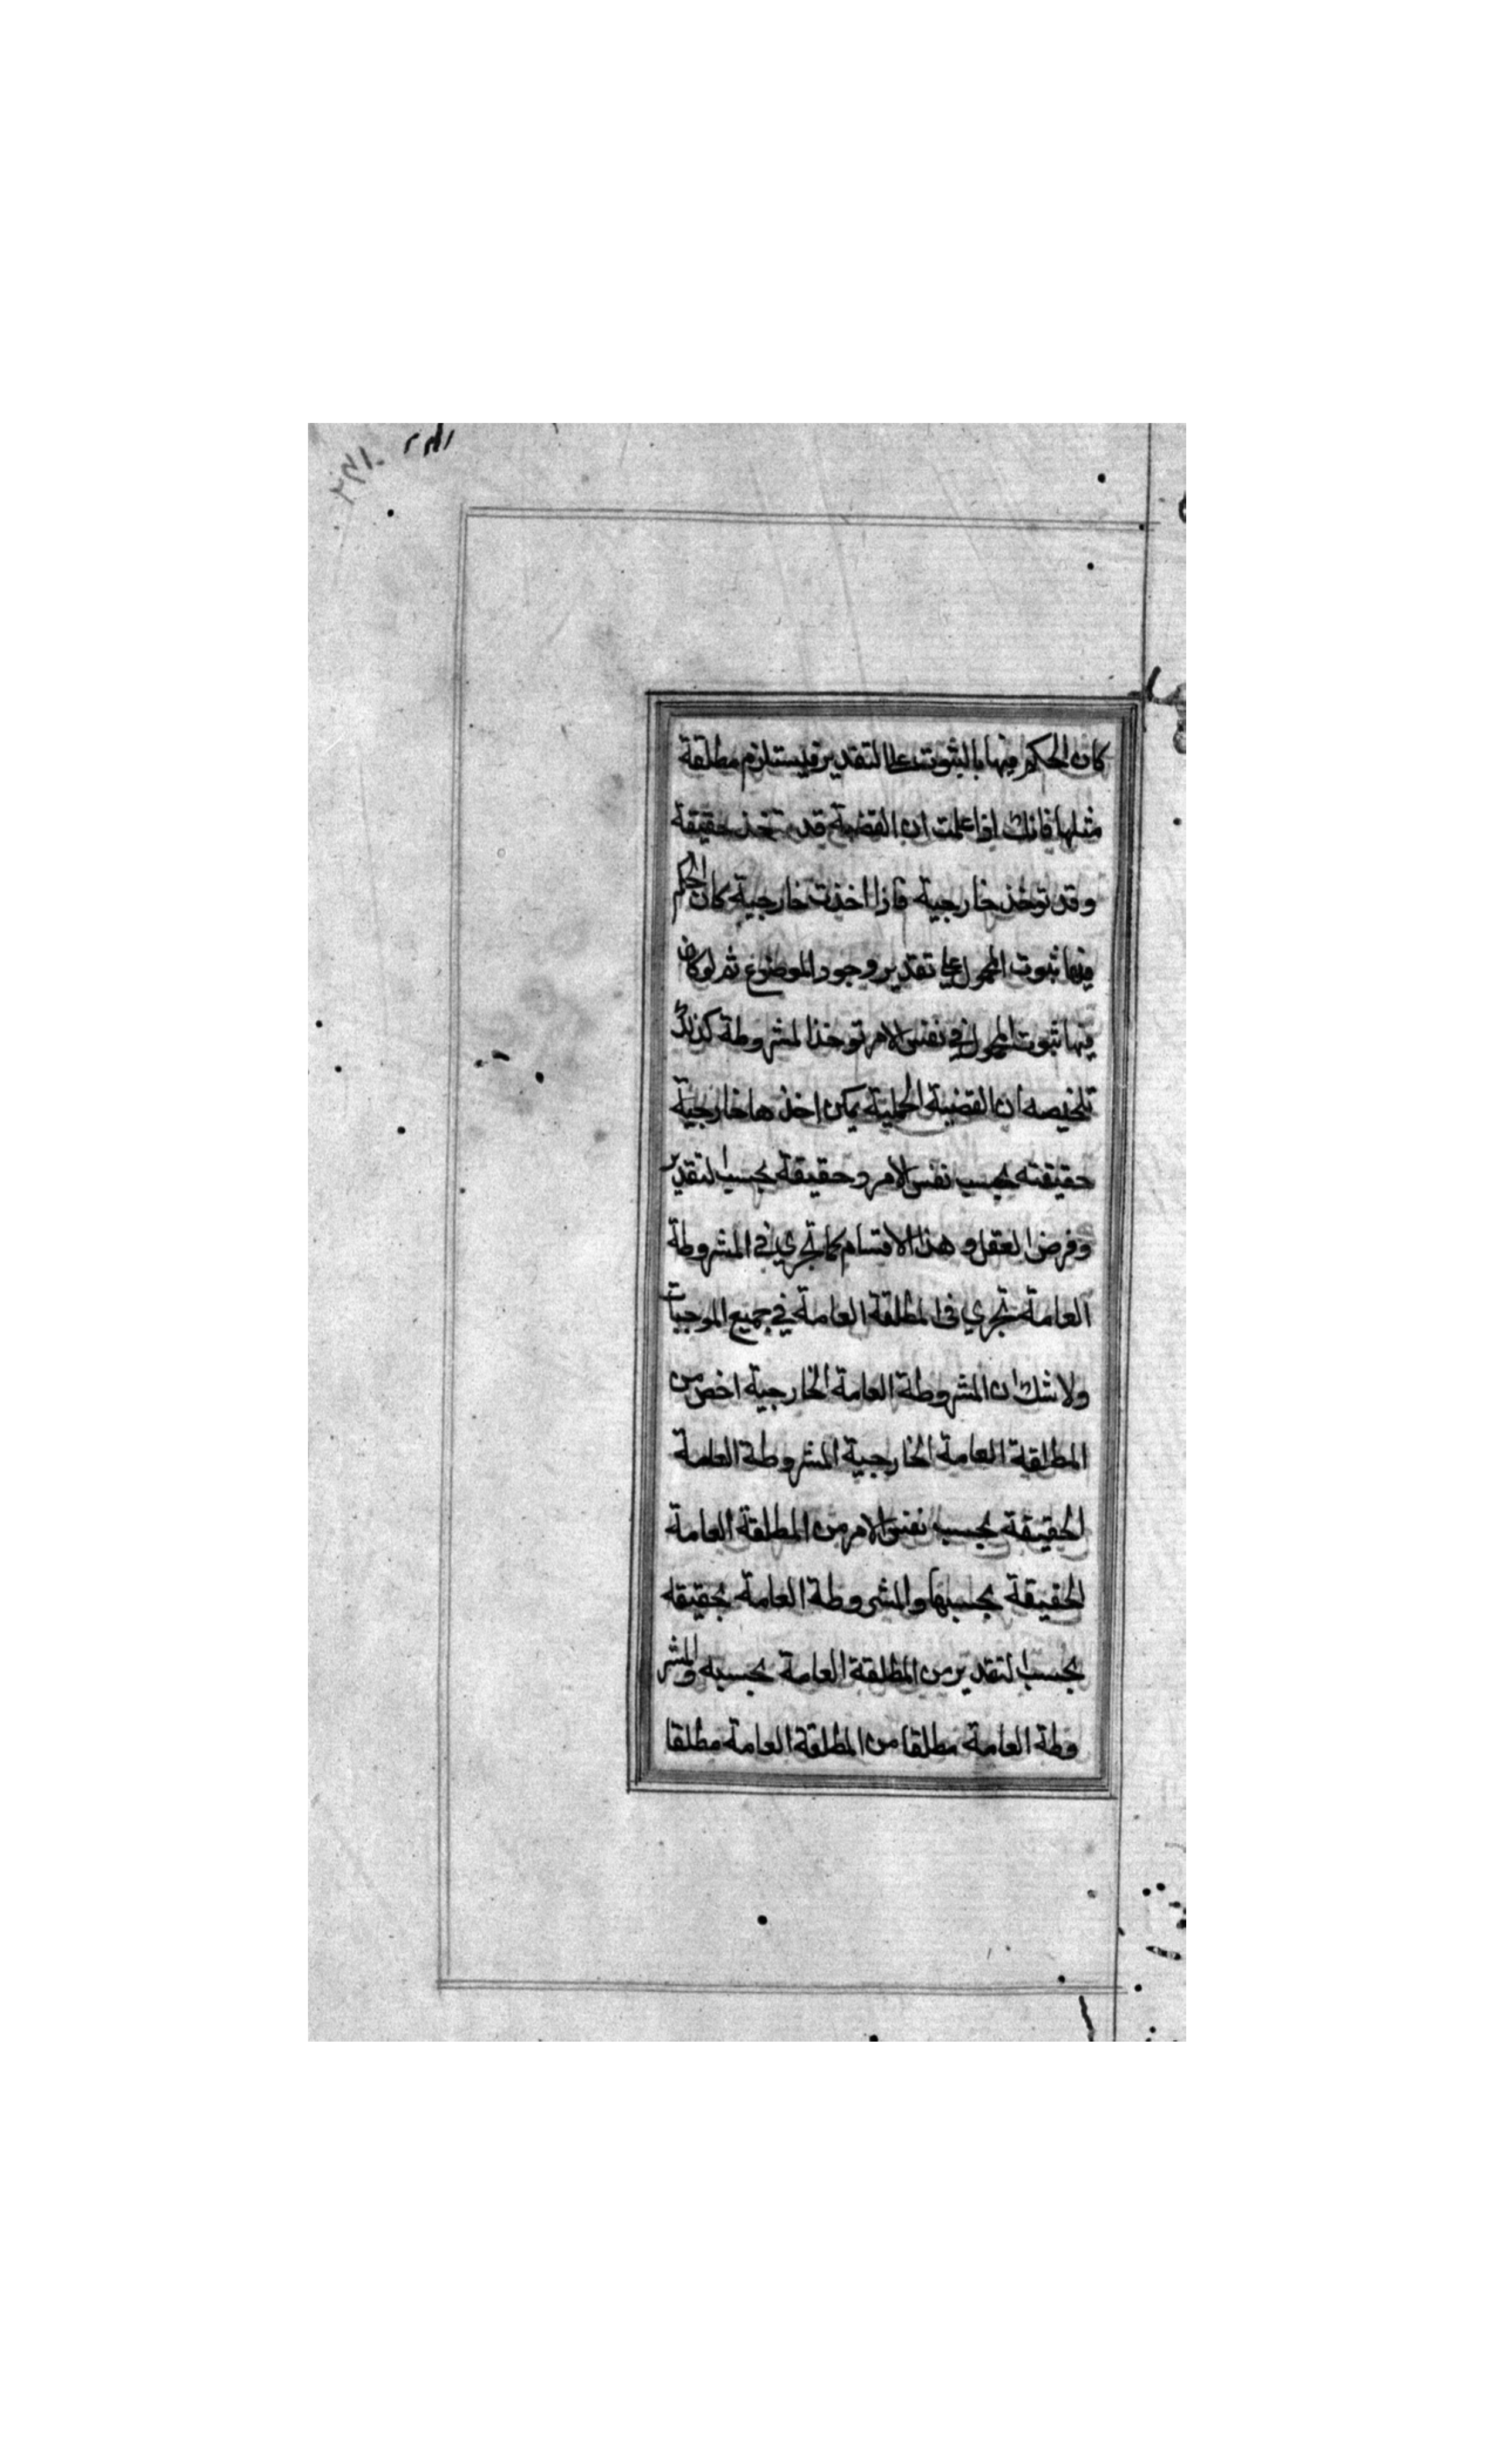 كان الحكم فيها بالثبوت على التقدير فيستلزم مطلقة
مثلها فانك اذا علمت ان القضية قد تتخذ حقيقة
وقد توخذ خارجية فاذا اخذت خارجية كان الحكم
فيها ثبوت المحمول على تقدير وجود الموضوع ثم لو كان
فيها ثبوت المحمول في نفس الامر توخذ المشروطة كذلك
تلخيصه ان القضية الحملية يمكن اخذها خارجية
حقيقته بحسب نفس الامر وحقيقة بحسب التقدير
وفرض العقل وهذا الاقسام كما تجري في المشروطة
العامة تجري في المطلقة العامة في جميع الموجبات
ولا شك ان المشروطة العامة الخارجية اخص من
المطلقة العامة الخارجية المشروطة العامة
الحقيقة بحسب نفس الامر من المطلقة العامة
الحقيقة بحسبها والمشروطة العامة بحقيقه
بحسب التقدير من المطلقة العامة بحسبه والمشر
وطة العامة مطلقا من المطلقة العامة مطلقا